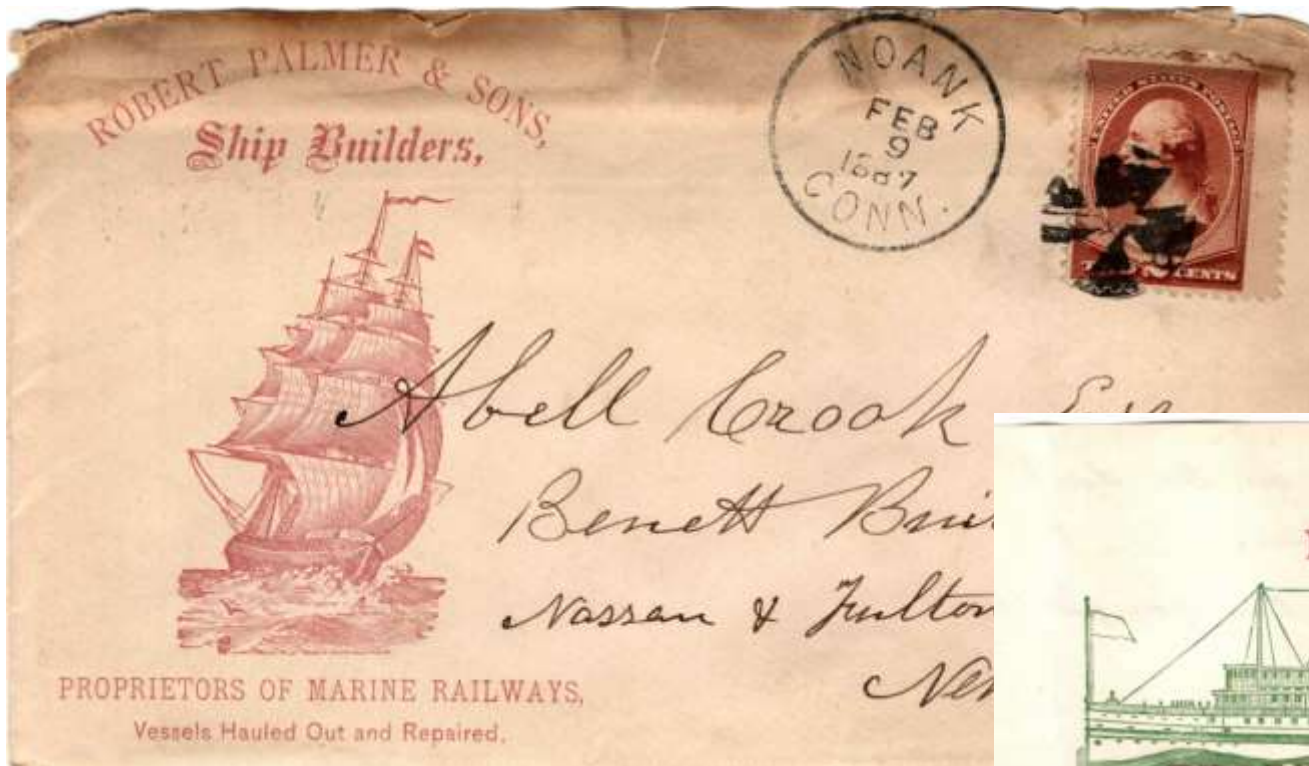 ROBERT PALMER & SONS,
Ship Builders,
NOANK
FEB
9
1887
CONN.
UNITED STATES POSTAGE
CENTS
Abell Crook Esq
Benett
Nassau & Fulton
PROPRIETORS OF MARINE RAILWAYS,
Vessels Hauled Out and Repaired.